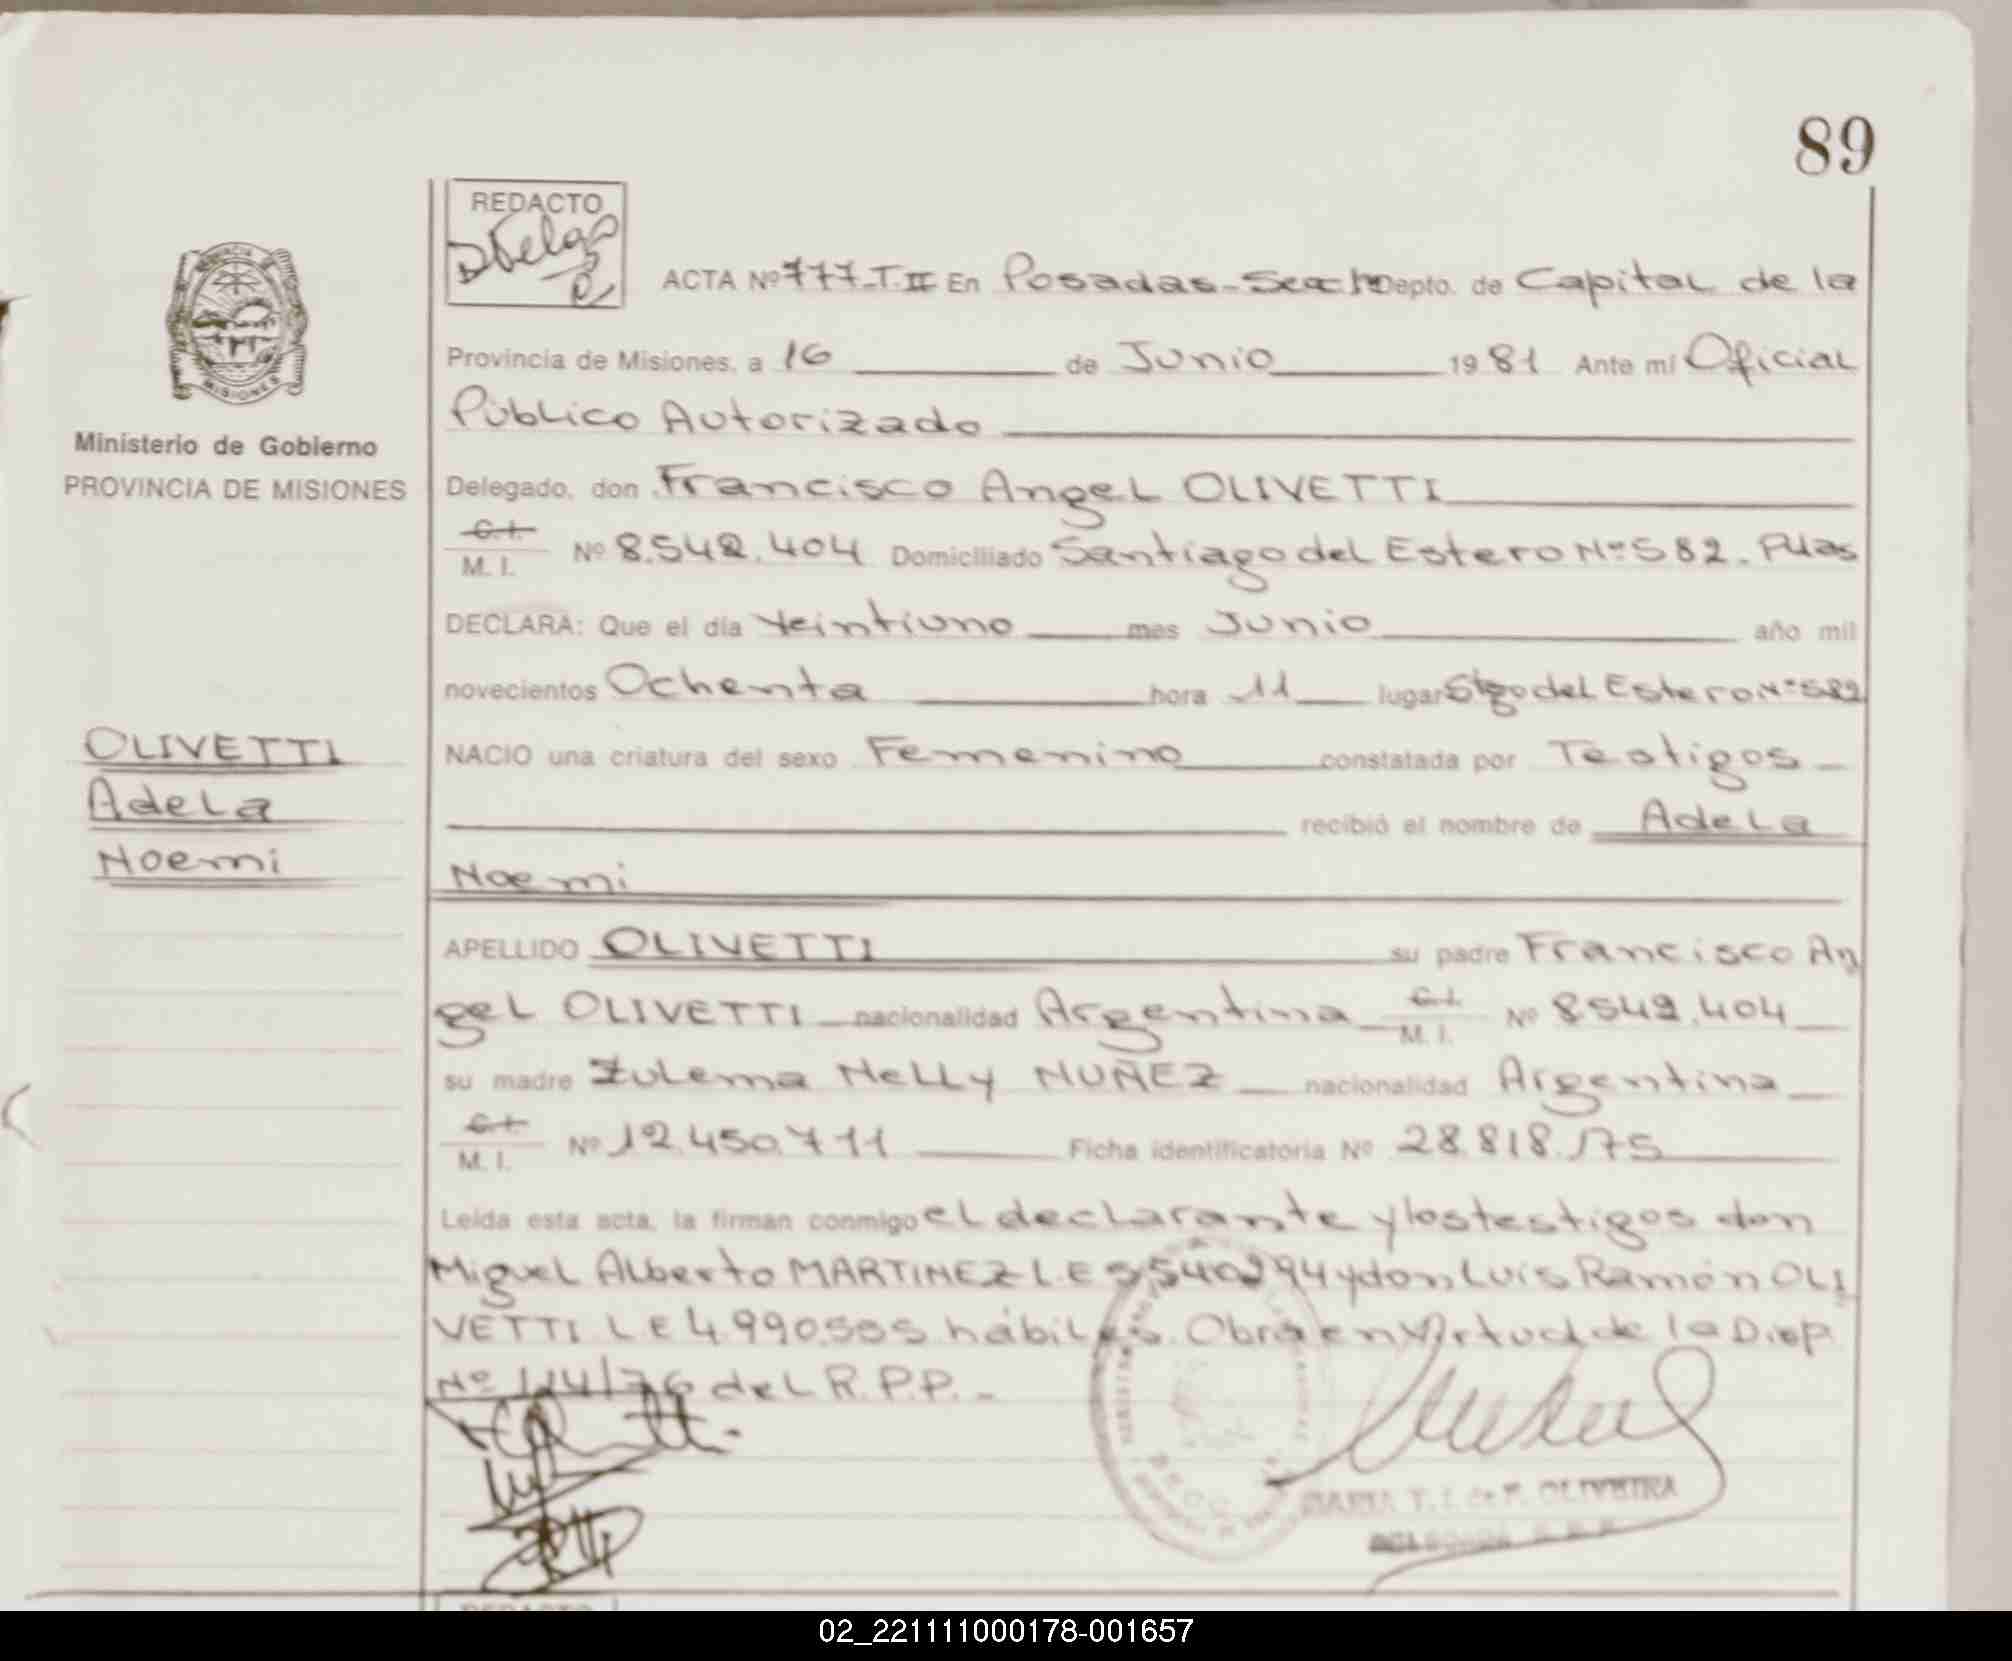 89
REDACTO
ACTA Nº 777-T.II En Posadas-Secc 1ª Depto. de Capital de la
Provincia de Misiones, a 16 de Junio 1981 Ante mi Oficial
Público Autorizado
Delegado, don Francisco Angel OLIVETTI
C.I.
M. I. Nº 8.542.404 Domiciliado Santiago del Estero Nº 582. Pdas
DECLARA: Que el día Veintiuno mes Junio año mil
novecientos Ochenta hora 11 lugar Stgo del Estero Nº 582
NACIO una criatura del sexo Femenino constatada por Testigos
recibió el nombre de Adela
Noemi
APELLIDO OLIVETTI su padre Francisco An
gel OLIVETTI nacionalidad Argentina C.I. M. I. Nº 8542.404
su madre Zulema Nelly NUÑEZ nacionalidad Argentina
C.I.
M. I. Nº 12.450.711 Ficha identificatoria Nº 28.818.175
Leída esta acta, la firman conmigo el declarante y los testigos don
Miguel Alberto MARTINEZ L.E 5.540.294 y don Luis Ramón OLI
VETTI L E 4.990.505 hábiles. Obra en Virtud de la Disp.
Nº 114/76 del R.P.P.-
MISIONES
Ministerio de Gobierno
PROVINCIA DE MISIONES
OLIVETTI
Adela
Noemi
OLIVEIRA
REDACTO
02_221111000178-001657